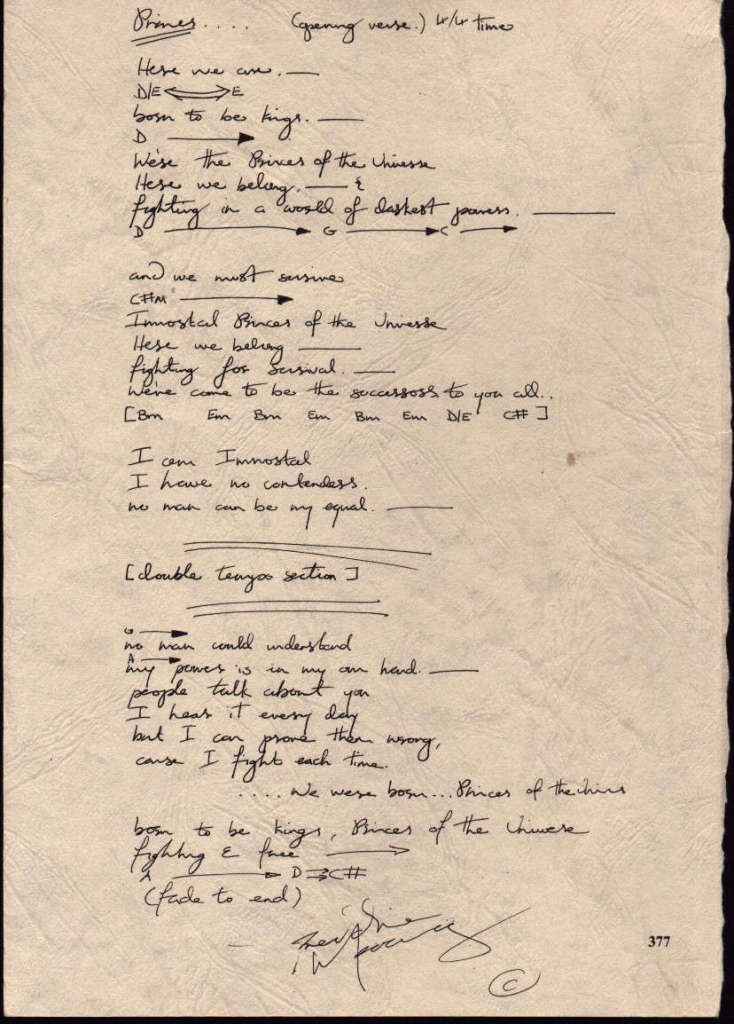 Princes.... (opening verse.) 4/4 time
Here we are. —
D/E ⟷ E
born to be kings. —
D →
We're the Princes of the Universe
Here we belong. — &
fighting in a world of darkest powers. —
D → G → C →
and we must survive
C#M →
Immortal Princes of the Universe
Here we belong —
fighting for survival. —
we've come to be the successors to you all..
[Bm Em Bm Em Bm Em D/E C#]
I am Immortal
I have no contenders.
no man can be my equal. —
[double tempo section]
G →
no man could understand
A →
my power is in my own hand. —
people talk about you
I hear it every day
but I can prove them wrong,
cause I fight each time.
.... We were born... Princes of the Univers
born to be kings, Princes of the Universe
fighting & free →
A → D ⇒ C#
(fade to end)
©
377